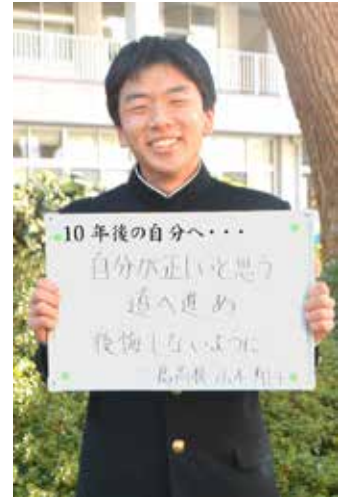 10年後の自分へ・・・
自分が正しいと思う
道へ進め
後悔しないように